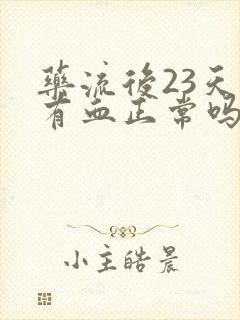 藥流後23天
有血正常吗
小主皓晨